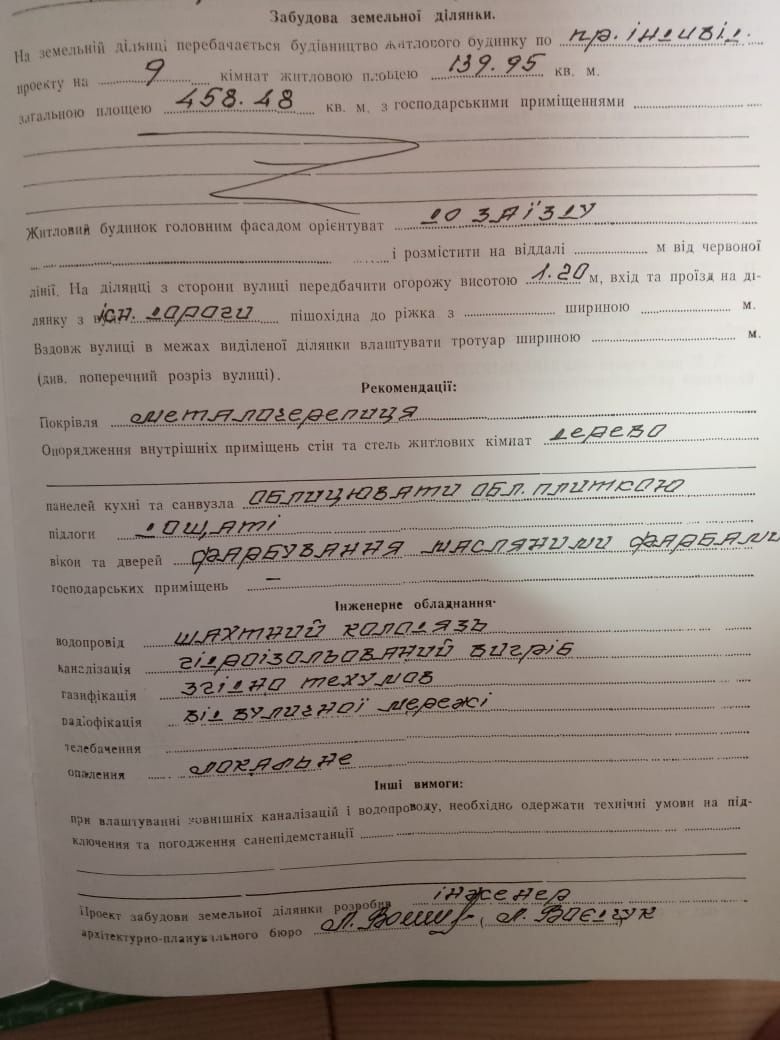 Забудова земельної ділянки.
На земельній ділянці перебачається будівництво житлового будинку по пр. індивід.
проекту на 9 кімнат житловою площею 139.95 кв. м.
загальною площею 458.48 кв. м. з господарськими приміщеннями
Житловий будинок головним фасадом орієнтуват до заїзду
і розмістити на віддалі м від червоної
лінії. На ділянці з сторони вулиці передбачити огорожу висотою 1.20 м, вхід та проїзд на ді-
лянку з існ. дороги пішохідна до ріжка з шириною м.
Вздовж вулиці в межах виділеної ділянки влаштувати тротуар шириною м.
(див. поперечний розріз вулиці).
Рекомендації:
Покрівля металочерепиця
Опорядження внутрішніх приміщень стін та стель житлових кімнат дерево
панелей кухні та санвузла облицювати обл. плиткою
підлоги дощаті
вікон та дверей фарбування масляними фарбами
господарських приміщень –
Інженерне обладнання·
водопровід шахтний колодязь
каналізація гідроізольований вигріб
газифікація згідно техумов
радіофікація від вуличної мережі
телебачення
опалення локальне
Інші вимоги:
при влаштуванні зовнішніх каналізацій і водопроводу, необхідно одержати технічні умови на під-
ключення та погодження санепідемстанції
Проект забудови земельної ділянки розробив інженер
архітектурно-планувального бюро Л.